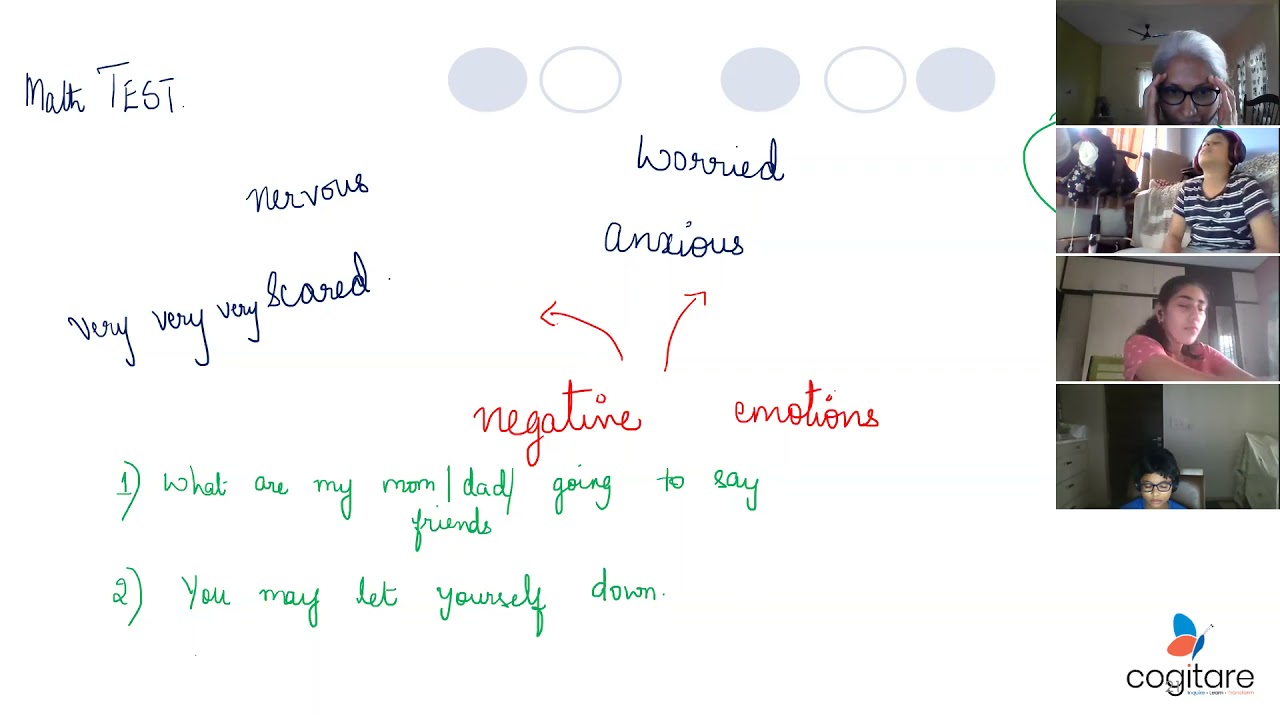 Math TEST.
worried
nervous
anxious
very very very scared.
negative emotions
1) What are my mom/dad/ going to say
friends
2) You may let yourself down.
cogitare
Inquire • Learn • Transform